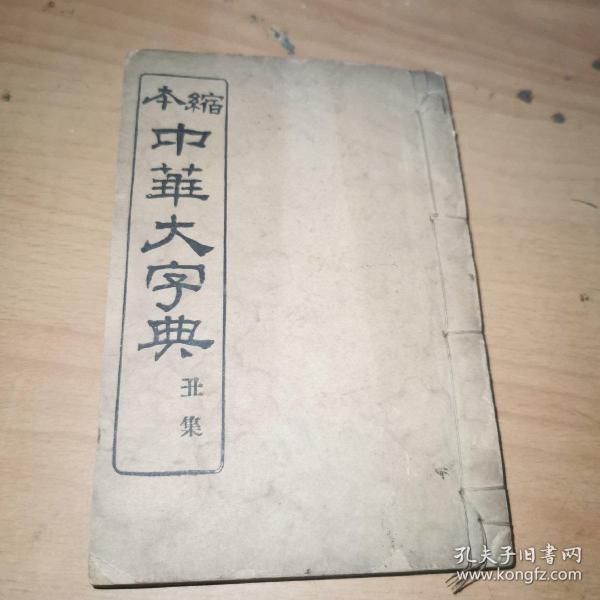 縮本
中華大字典
丑集
孔夫子旧書网
www.kongfz.com